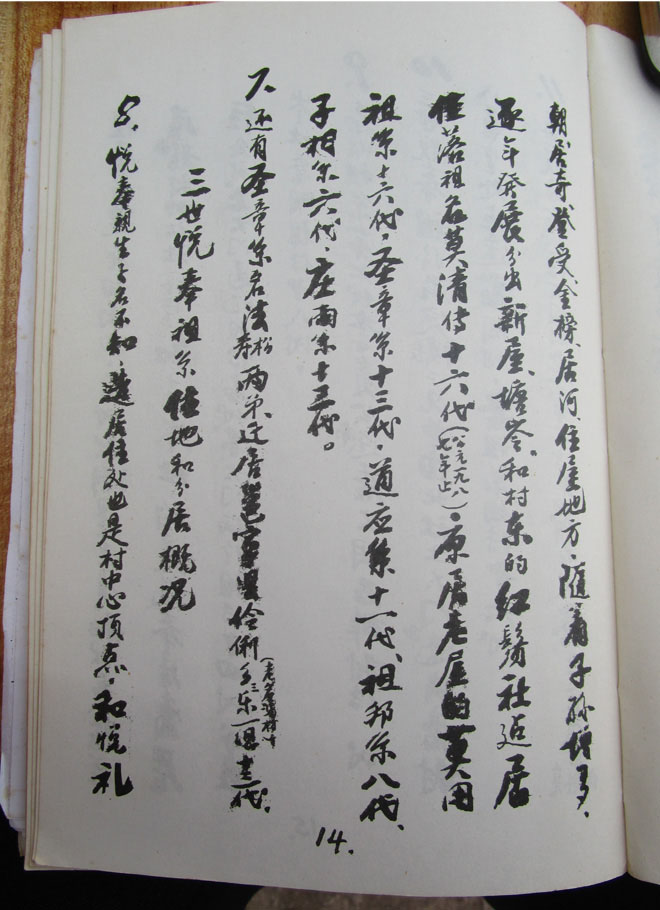 朝居奇登受金榜、居河、住屋地方、随着子孙增多、
逐年発展分出新屋、塘岑、和村东的红鬚社边居
住、落祖名莫清传十六代(公元一九八七年止)、原居老屋的莫用
祖系十六代、圣章系十三代、道应系十一代、祖邦系八代、
子相系六代、庄南系十三代。
7、还有圣章系名法松寿两弟迁居 伶俐乡三乐一
三世悦奉祖系住地和分居概况
8、悦奉親生子名不知、 居住处也是村中心顶点、和悦礼
14.